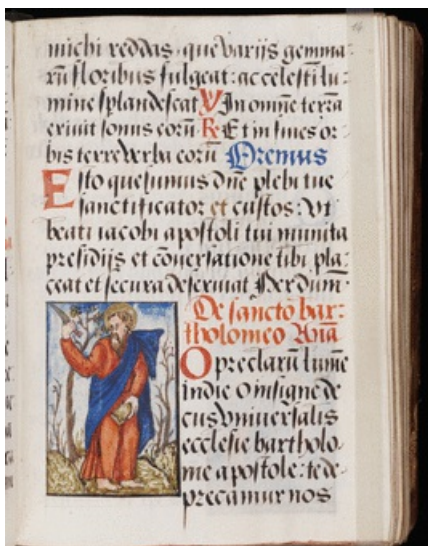 michi reddas que varijs gemma-
rū floribus fulgeat: ac celesti lu-
mine splandescat V In omnē terrā
exiuit sonus eorū R Et in fines or-
bis terre verba eorū Oremus
Esto quesumus dn̄e plebi tue
sanctificator et custos: vt
beati iacobi apostoli tui munita
presidijs et cōuersatione tibi pla-
ceat et secura deseruiat Per dum̄
De sancto bar-
tholomeo Anā
O preclarū lumē
indie O insigne de-
cus vniuersalis
ecclesie bartholo-
me apostole: te de-
precamur nos